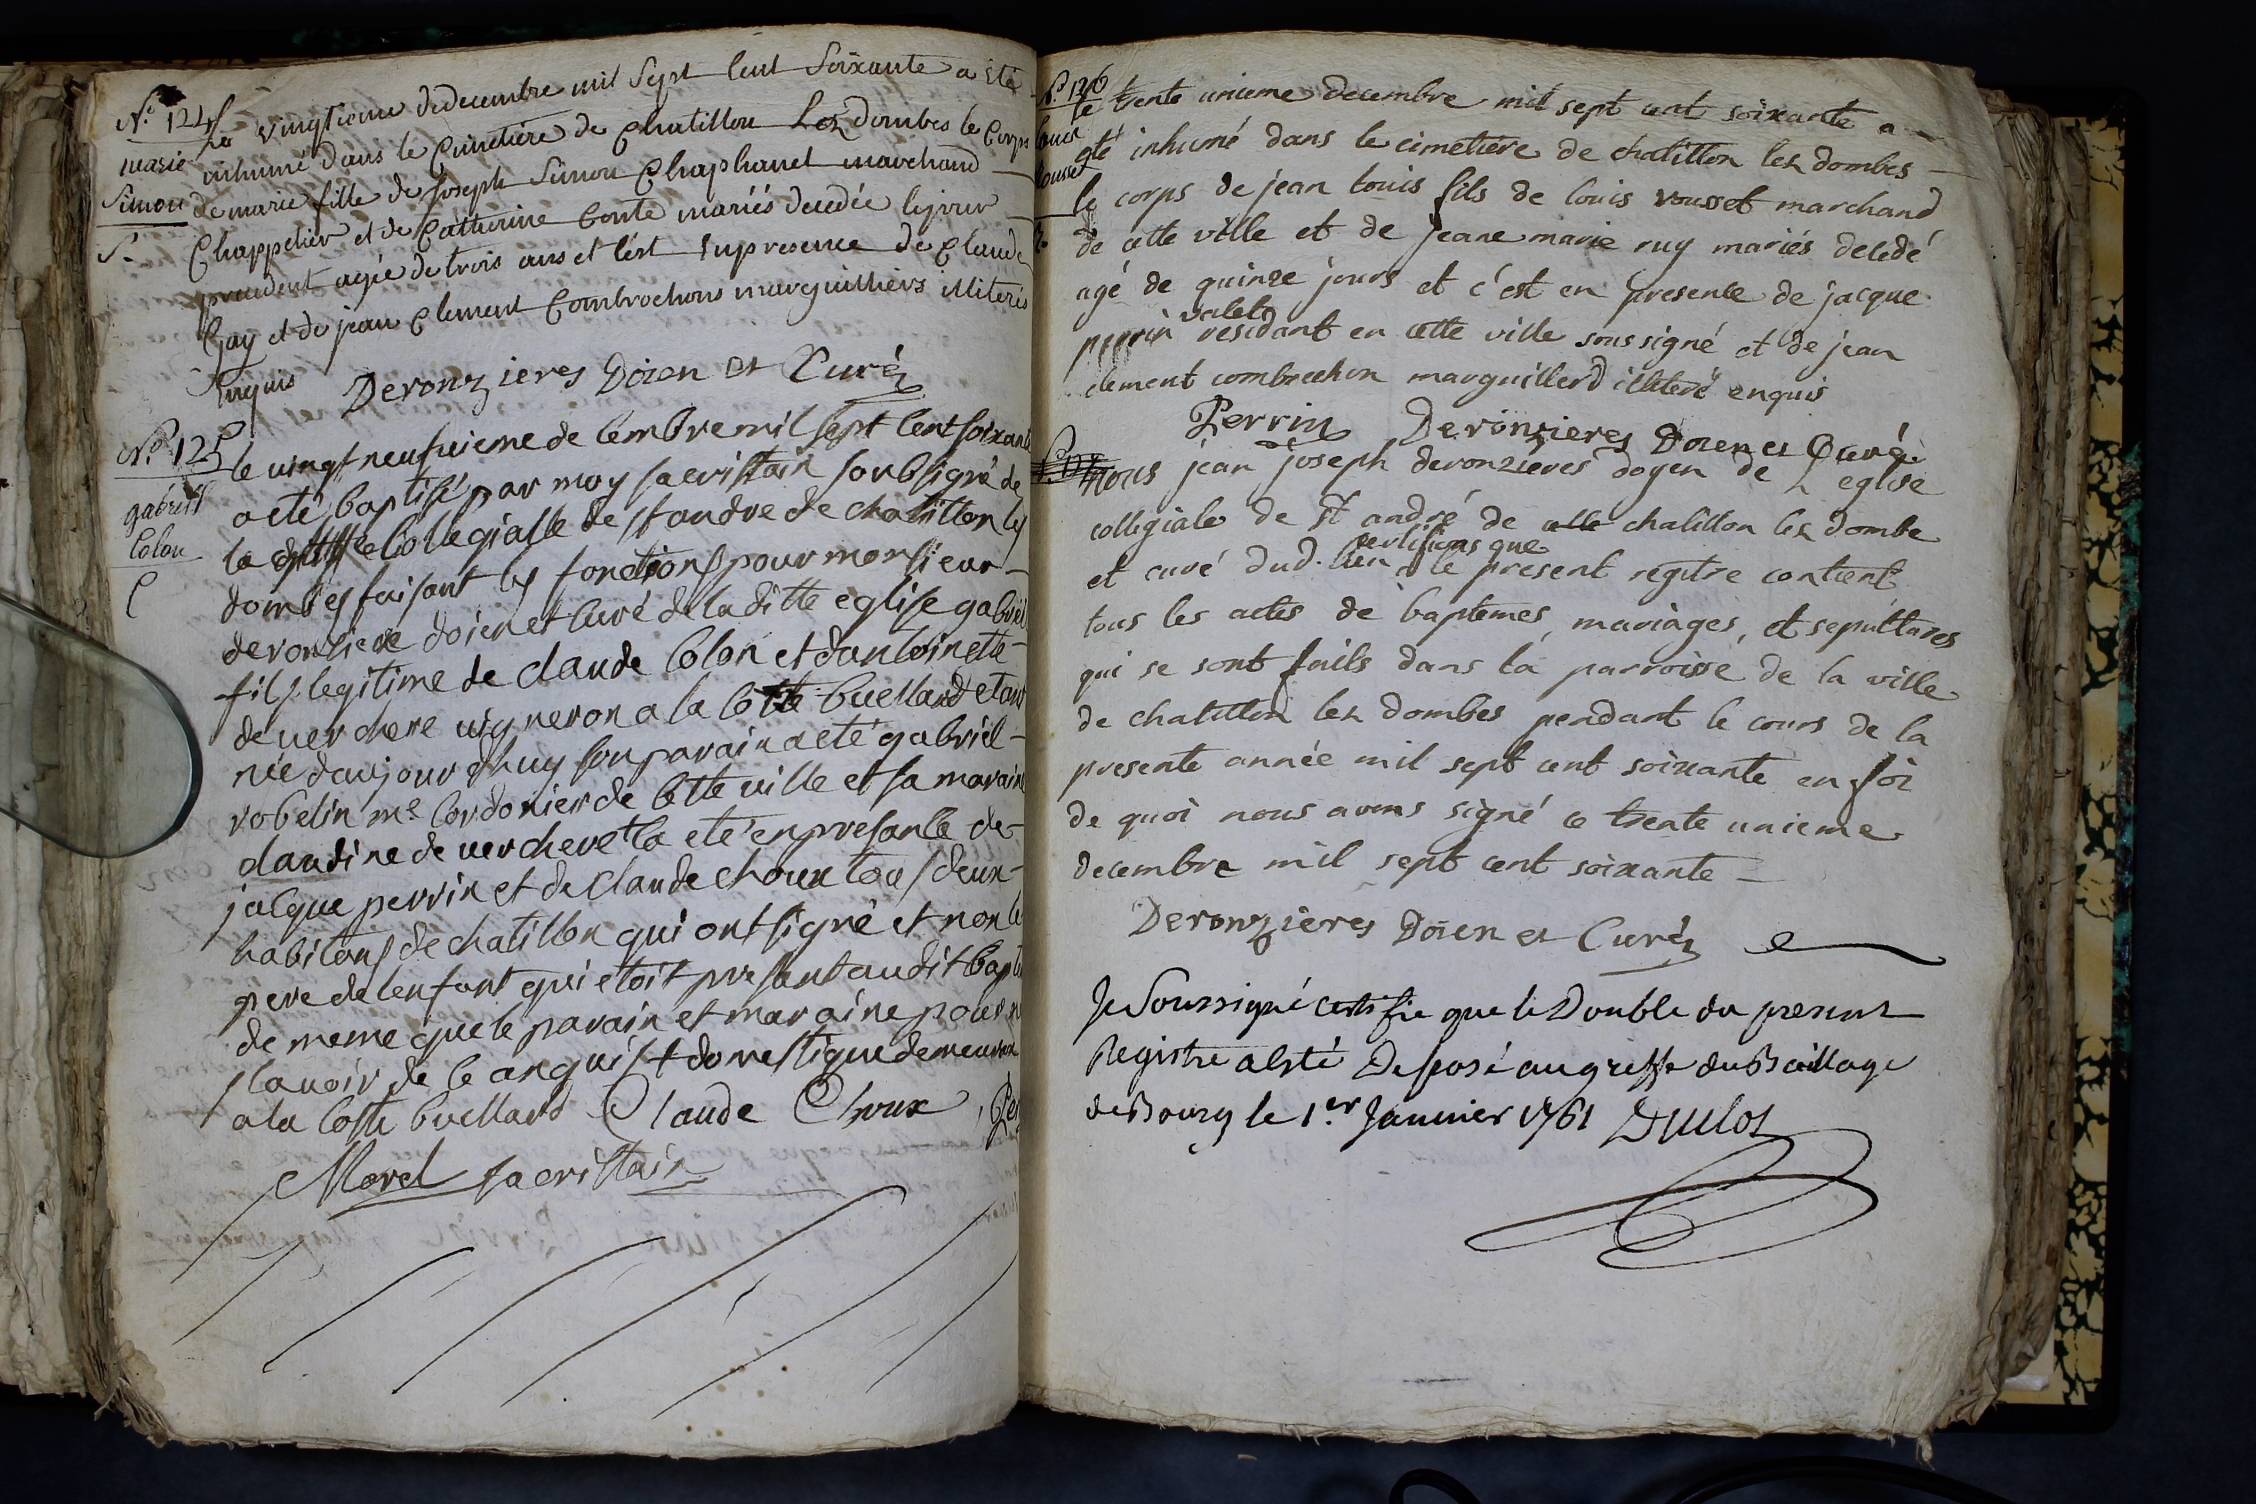 N.º 124
marie
Simon
S.
Le vingtieme de decembre mil Sept Cent Soixante a été
inhumé dans le Cimetiére de Chatillon Lez dombes le Corps
de marie fille de Joseph Simon Chaphanel marchand
Chappelier et de Catherine Conte mariés decedée le jour
precedent agée de trois ans et c'est En presence de Claude
Gay et de jean Clement Combrochons marguilliers illiterés
Enquis Deronzieres Doien et Curé
N.º 125
gabriel
Colon
le vingt neufvieme decembre mil sept cent soixante
a eté baptisé par moy sacristain soubsigné de
la Collegialle de st andre de chatillon les
dombes faisant les fonctions pour monsieur
deronziere doien et curé de la ditte eglise gabriel
fils legitime de claude Colon et dantoinette
de verchere vigneron a la Cotte buelland etant
née daujourdhuy son parain a eté gabriel
robelin me Cordonier de Cette ville et sa maraine
claudine de verchere et la eté en presance de
jacque perrin et de claude choux tous deux
habitans de chatillon qui ont signé et non le
pere de lenfant qui etoit presant audit bapte
de meme que le parain et maraine pour ne
scavoir de ce anquis et domestique demeurant
a la Cotte buelland Claude Choux Per
Morel sacristain
N.º 126
Louis
Vousset
le trente unieme decembre mil sept cent soixante a
eté inhumé dans le cimetiére de chatillon lez dombes
le corps de jean louis fils de louis vousset marchand
de cette ville et de jeane marie ruy mariés decedé
agé de quinze jours et c'est en presence de jacque
valet
perrin residant en cette ville soussigné et de jean
clement combrechon marguillerd illiteré enquis
Perrin Deronzieres Doien et Curé
nous jean joseph deronzieres doyen de L'eglise
collegiale de st andré de celle chatillon lez dombe
certifions que
et curé dud. lieu le present regitre contient
tous les actes de baptemes, mariages, et sepultures
qui se sont faits dans la parroisse de la ville
de chatillon lez dombes pendant le cours de la
presente année mil sept cent soixante en foi
de quoi nous avons signé ce trente unieme
decembre mil sept cent soixante
Deronzieres Doien et Curé
Je Soussigné certifie que le Double du present
Registre a esté Deposé au greffe du Baillage
de Bourg le 1.er Janvier 1761 Duclos